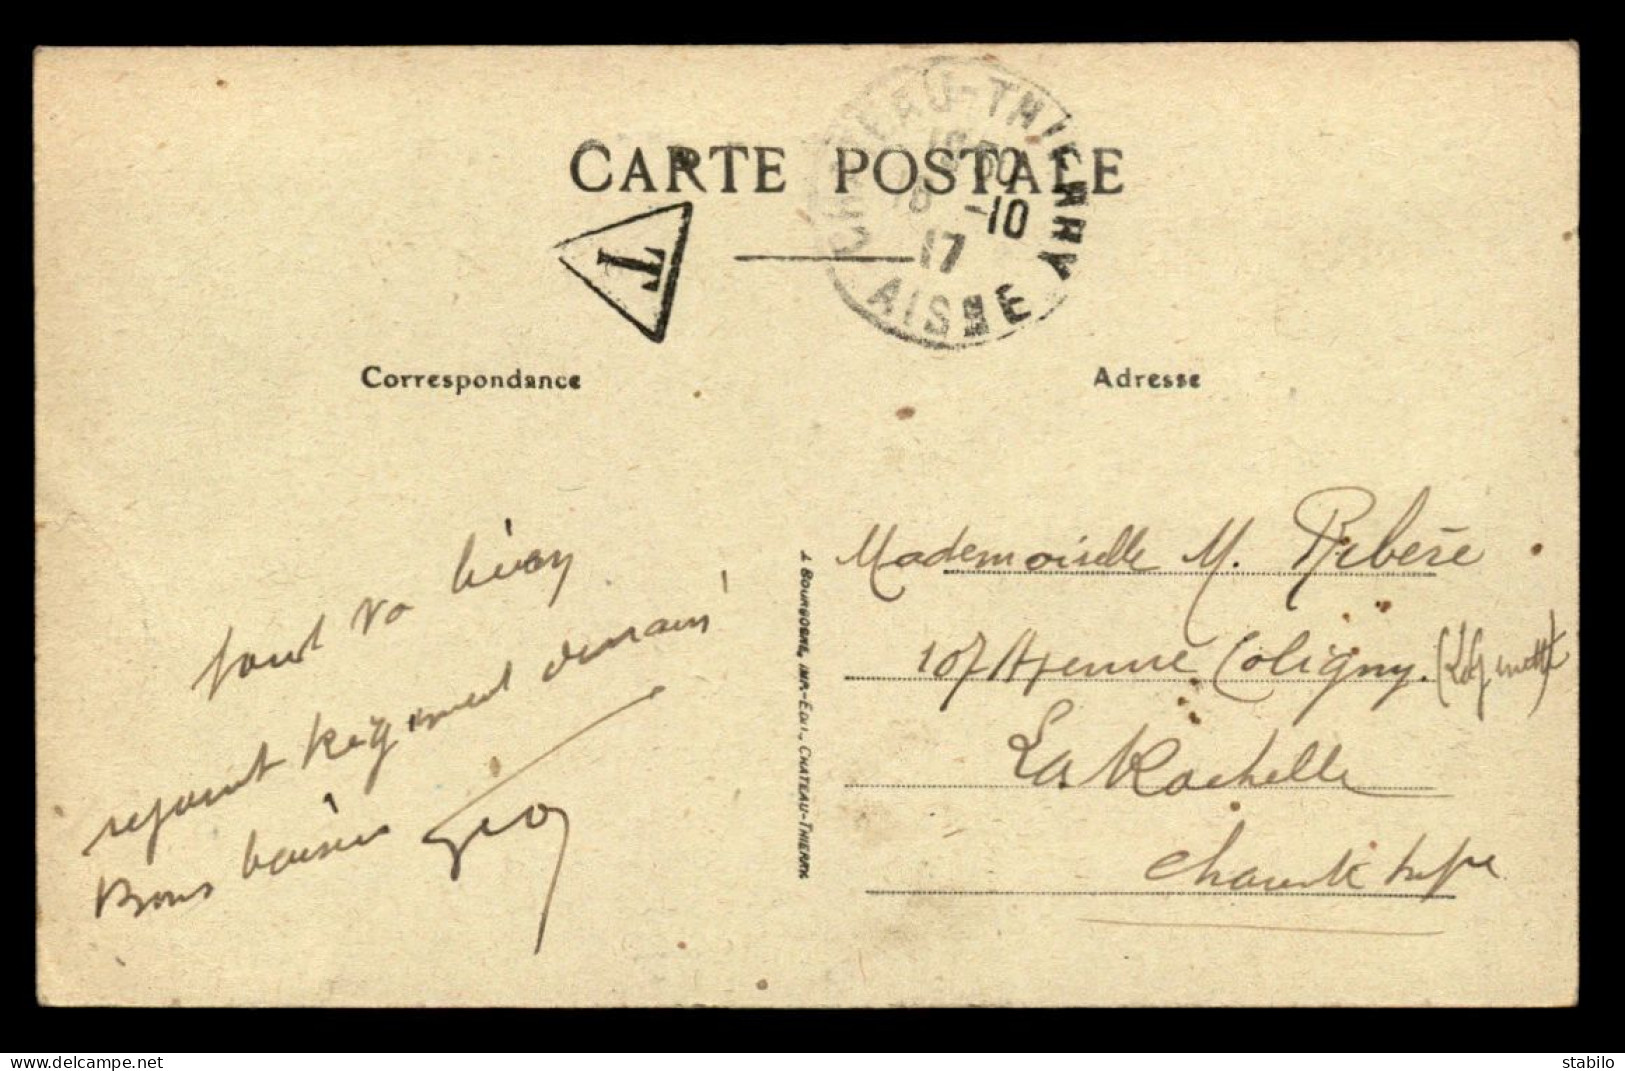 CARTE POSTALE
T
CHATEAU-THIERRY
-10
17
AISNE
Correspondance
Adresse
tout va bien
rejoint Régiment demain
Bons baisers
Mademoiselle M. Ribère
107 Avenue Coligny.
La Rochelle
Charente Infre
J. BOURGOGNE, IMP.-EDIT., CHATEAU-THIERRY
delcampe.net
stabilo